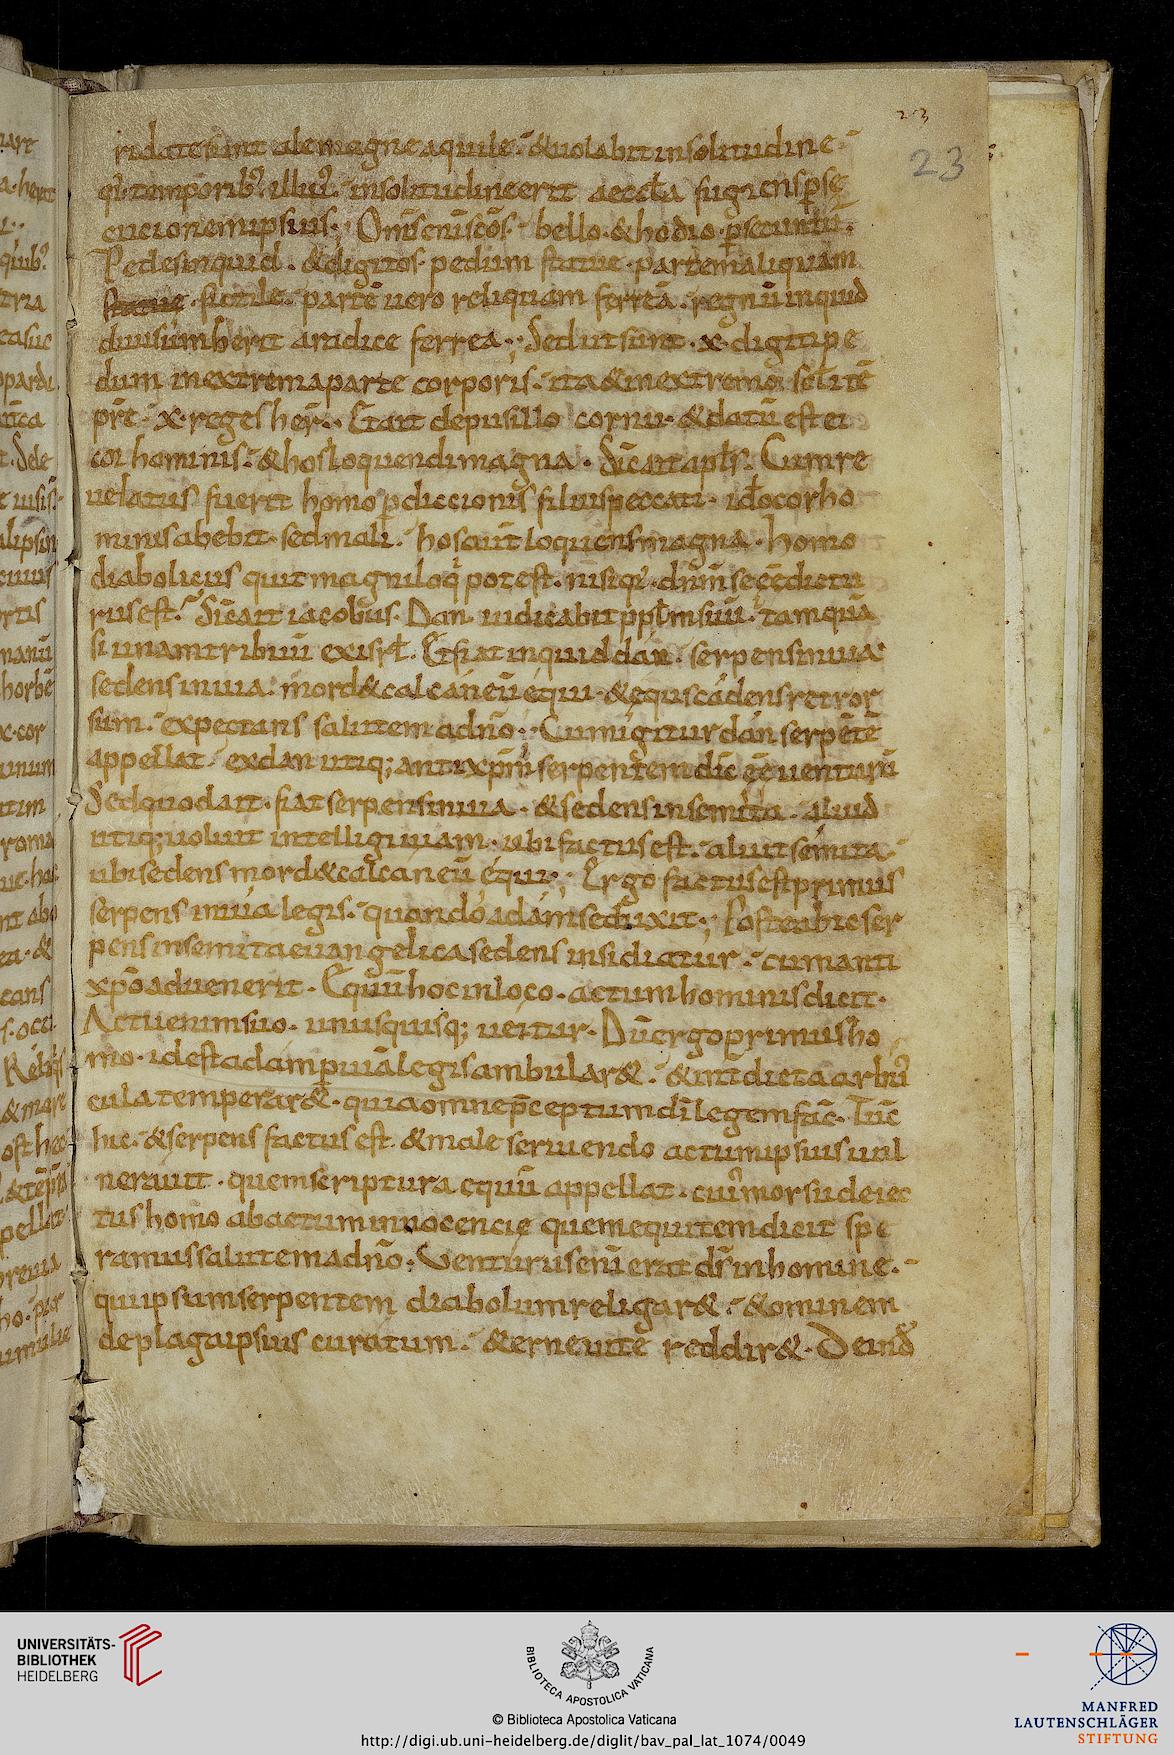 23
23
ridate sunt ale magne aquile · & uolabit in solitudine ·
qͥ temporibꝰ illiuꝰ · in solitudine erit aeccl̄a fugiens ꝑse
cucionem ipsius · Om̄s eni scōs · bello · & hodio · ꝑsecuntur ·
Pedes inquid · & digitos pedum statue · partem aliquam
statue · fictile · partē uero reliquam ferreā · regnū inquid
diuisum herit a radice ferrea ; Sed ut sunt · x · digiti pe
dum in extrema parte corporis · ita & in extremo · scl̄i tē
pr̄e · x · reges her̄ · Et ait de pusillo cornu · & datū est ei
cor hominis · & hos loquendi magna · Sic̄ ait apl̄s · Cum re
uelatus fuerit homo ꝑdiccionis filius peccati · id̄o cor ho
minis abebit · sed mali · hos aut̄ loquens magna · homo
diabolicus
rus est · Sic̄ ait iacobus · Dan iudicabit ppl̄m suū · tamquā
si unam tribuū exisrl̄ · Et fiat inquid dan · serpens in uia
sedens in uia · mord& calcaneū equi · & equs cadens retror
sum · expectans salutem a dn̄o · Cum igitur dan serpētē
appellat ex dan utiq; antixp̄m serpentem dic̄ eē uenturū
Sed quod ait · fiat serpens in uia · & sedens in semita · aliud
utiq; uoluit intelligi uiam · ubi factus est · aliut semita ·
ubi sedens mord& calcaneū equi ; Ergo factus est primus
serpens in uia legis · quando adam seduxit ; Postea hic ser
pens in semita euangelica sedens insidiatur · cum anti
xp̄o aduenerit · Equū hoc in loco · actum hominis dicit ·
Actu enim suo · unusquisq; ueitur · Dū ergo primus ho
mo · id est adam ꝑ uiā legis ambular& · & int dicta arbuꝰ
cula temperar& · quia omne p̄ceptum dī legem fac̄ · Tūc
hic · & serpens factus est & male seruiendo actum ipsius uul
nerauit · quem scriptura equū appellat · cuiꝰ morsu deiec
tus homo ab actum innocencie quem equitem dicit spe
ramus salutem a dn̄o · Uenturus eni erat dr̄s in homine ·
qui ipsum serpentem diabolum religar& · & ominem
de plaga ipsius curatum · & erne uite reddir& · Deinđ
UNIVERSITÄTS-
BIBLIOTHEK
HEIDELBERG
BIBLIOTECA APOSTOLICA VATICANA
© Biblioteca Apostolica Vaticana
http://digi.ub.uni-heidelberg.de/diglit/bav_pal_lat_1074/0049
MANFRED
LAUTENSCHLÄGER
STIFTUNG